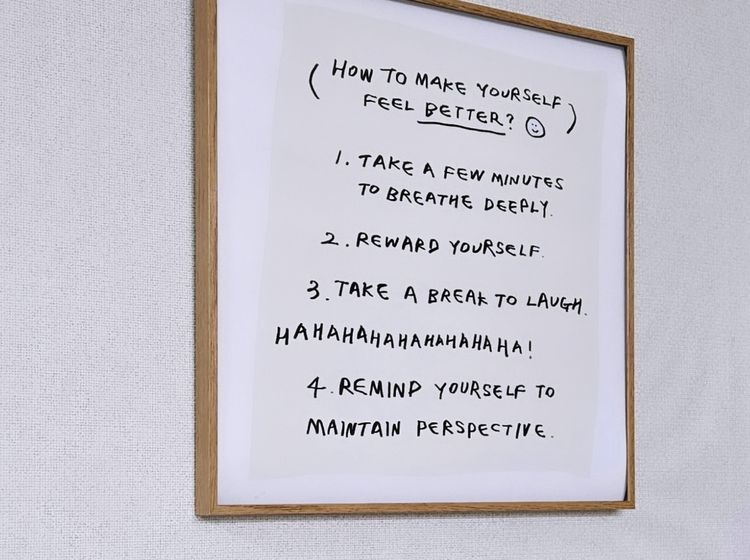 (HOW TO MAKE YOURSELF
FEEL BETTER?)
1. TAKE A FEW MINUTES
TO BREATHE DEEPLY.
2. REWARD YOURSELF.
3. TAKE A BREAK TO LAUGH.
HAHAHAHAHAHAHAHAHA!
4. REMIND YOURSELF TO
MAINTAIN PERSPECTIVE.